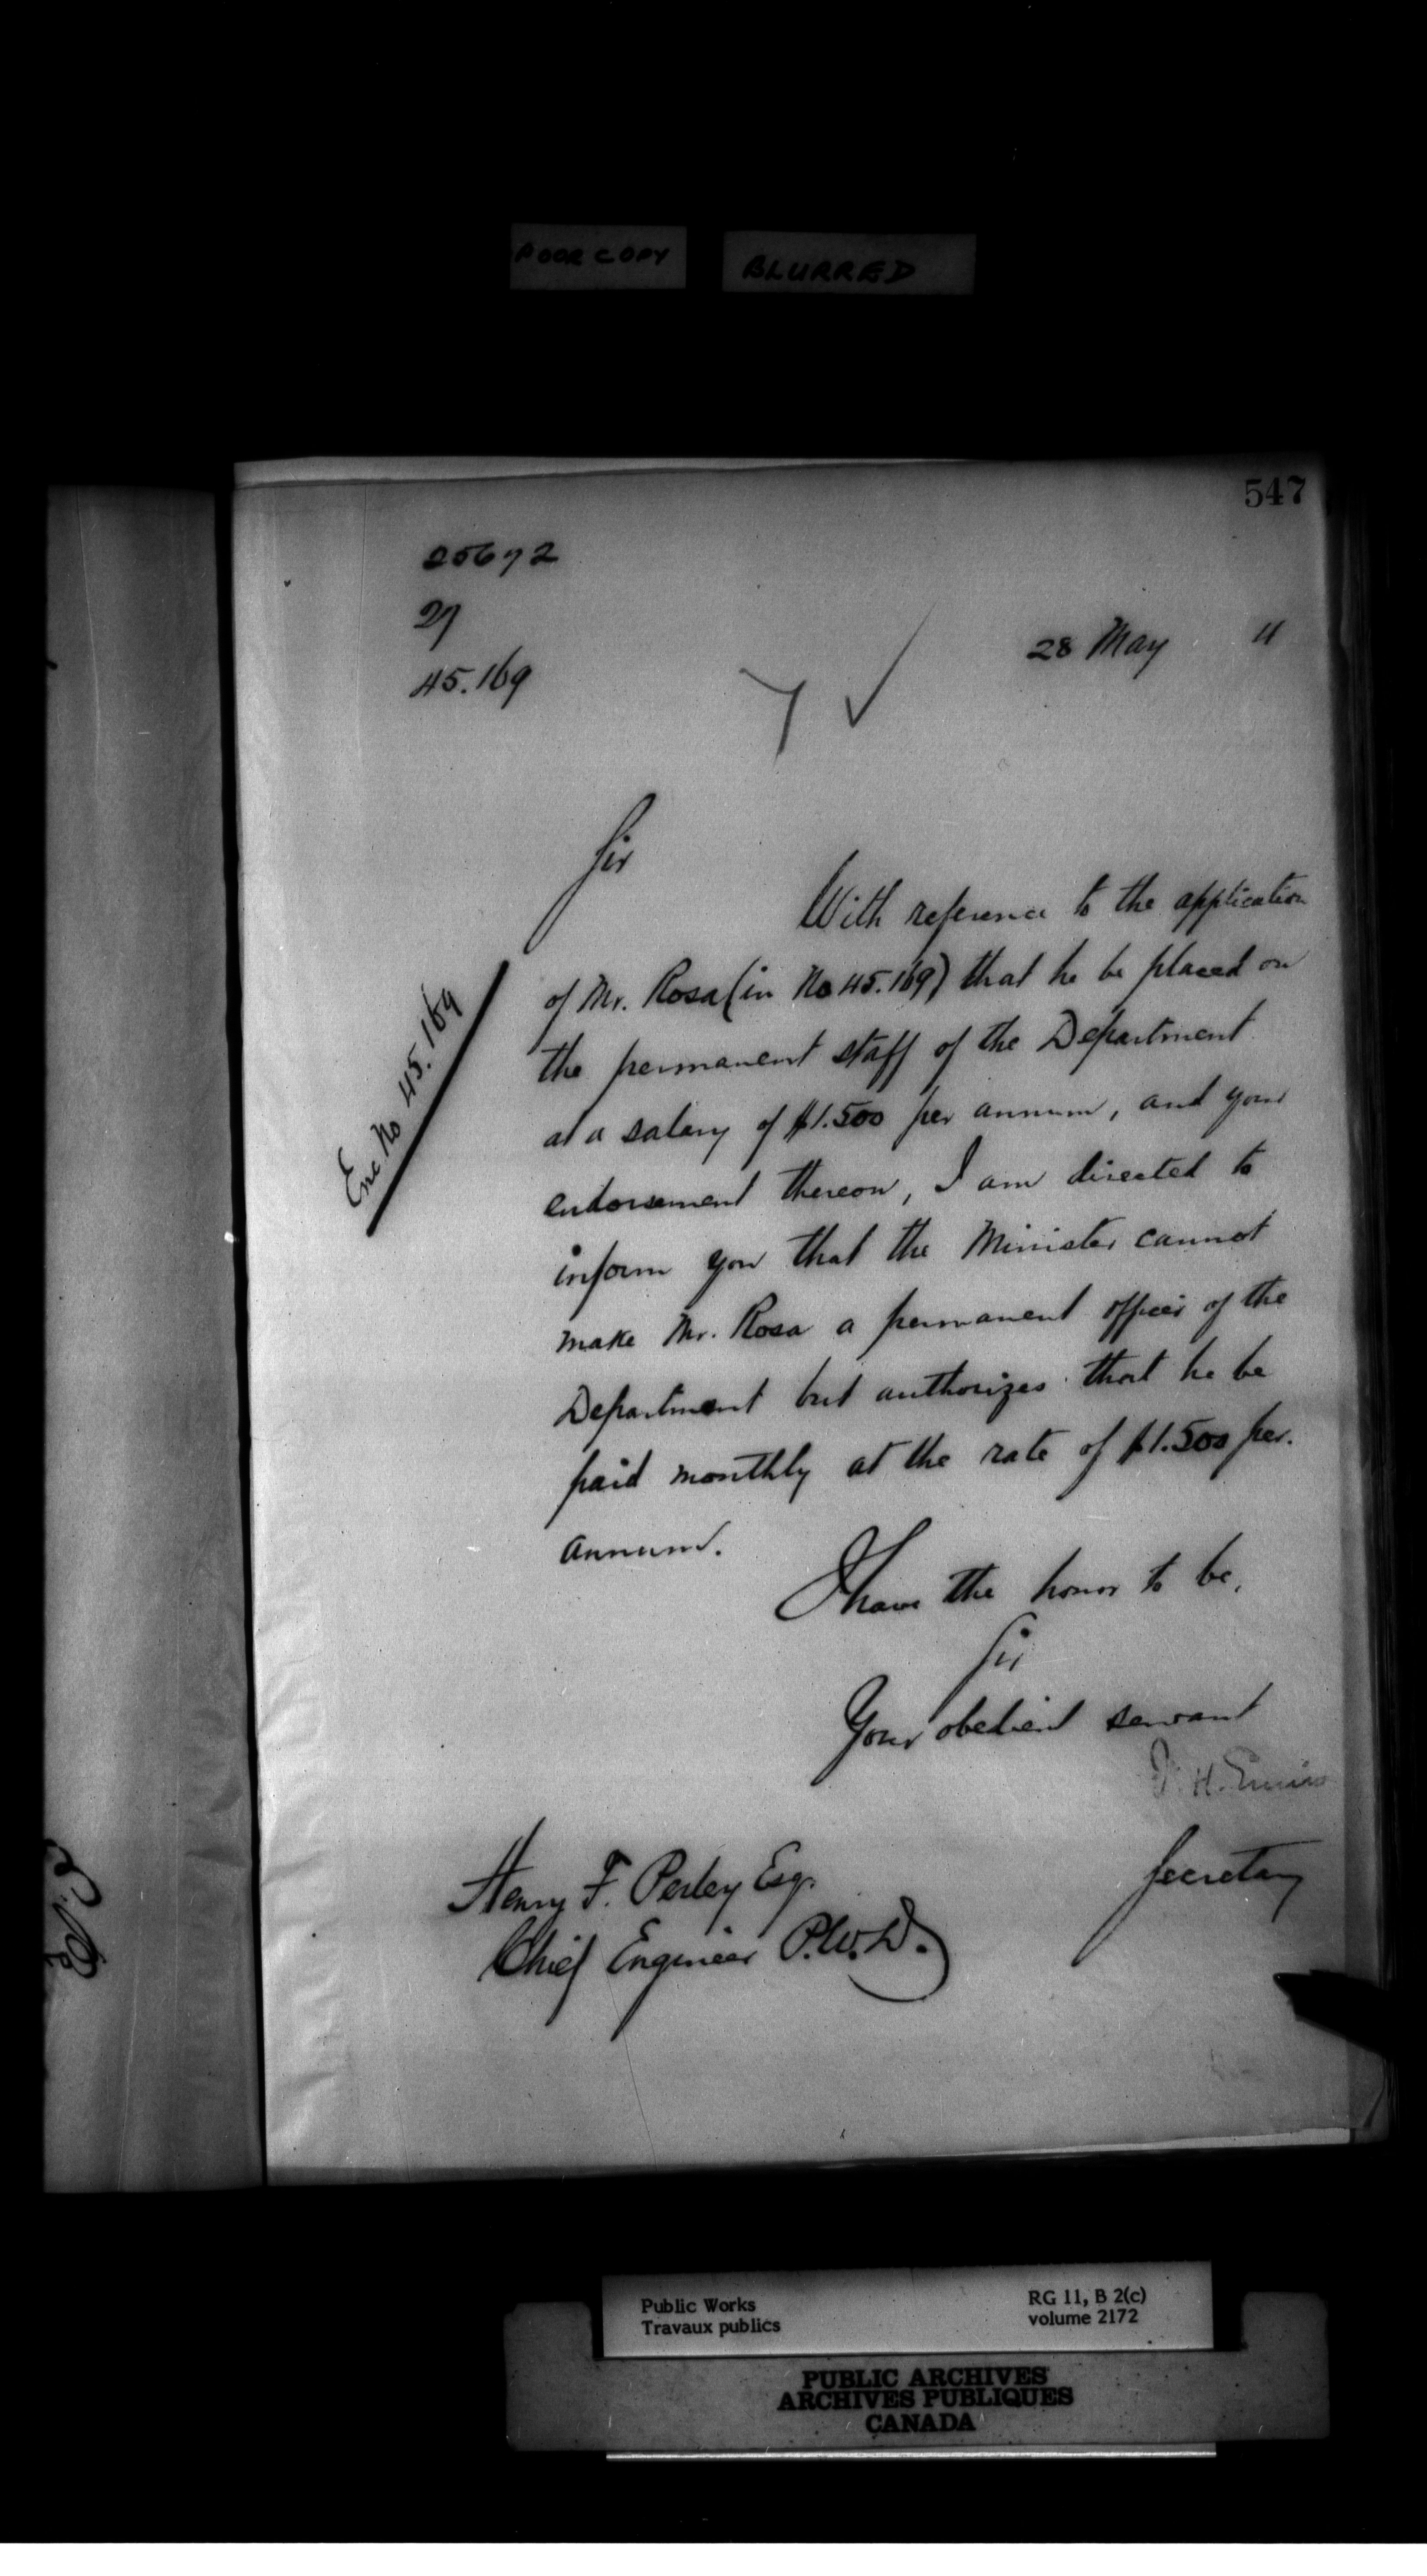 POOR COPY
BLURRED
547
25672
27
45.169
28 May
Sir
With reference to the application
of Mr. Rosa (in No 45.169) that he be placed on
the permanent staff of the Department
at a salary of $1.500 per annum, and your
endorsement thereon, I am directed to
inform you that the Minister cannot
make Mr. Rosa a permanent officer of the
Department but authorizes that he be
paid monthly at the rate of $1.500 per.
annum.
Enc No 45.169
I have the honor to be,
Sir
Your obedient servant
F. H. Ennis
Secretary
Henry F. Perley Esq.
Chief Engineer P.W.D.
Public Works
Travaux publics
RG 11, B 2(c)
volume 2172
PUBLIC ARCHIVES
ARCHIVES PUBLIQUES
CANADA